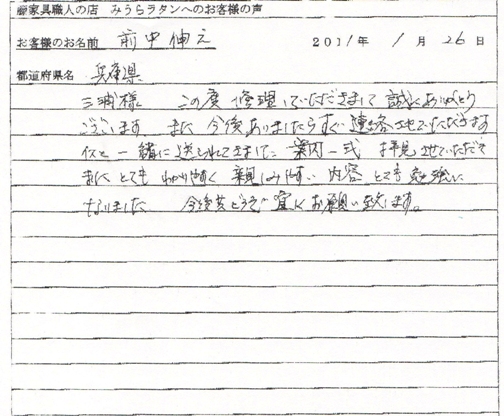 籐家具職人の店 みうらラタンへのお客様の声
お客様のお名前 前中伸え 2011年 1月 26日
都道府県名 兵庫県
三浦様 この度 修理していただきまして 誠にありがとう
ございます。また 今後ありましたらすぐ連絡させていただきます
イスと一緒に送られてきました 案内一式 拝見させていただき
ました とても わかりやすく 親しみやすい 内容 とても 勉強に
なりました 今後共どうぞ 宜しく お願い致します。